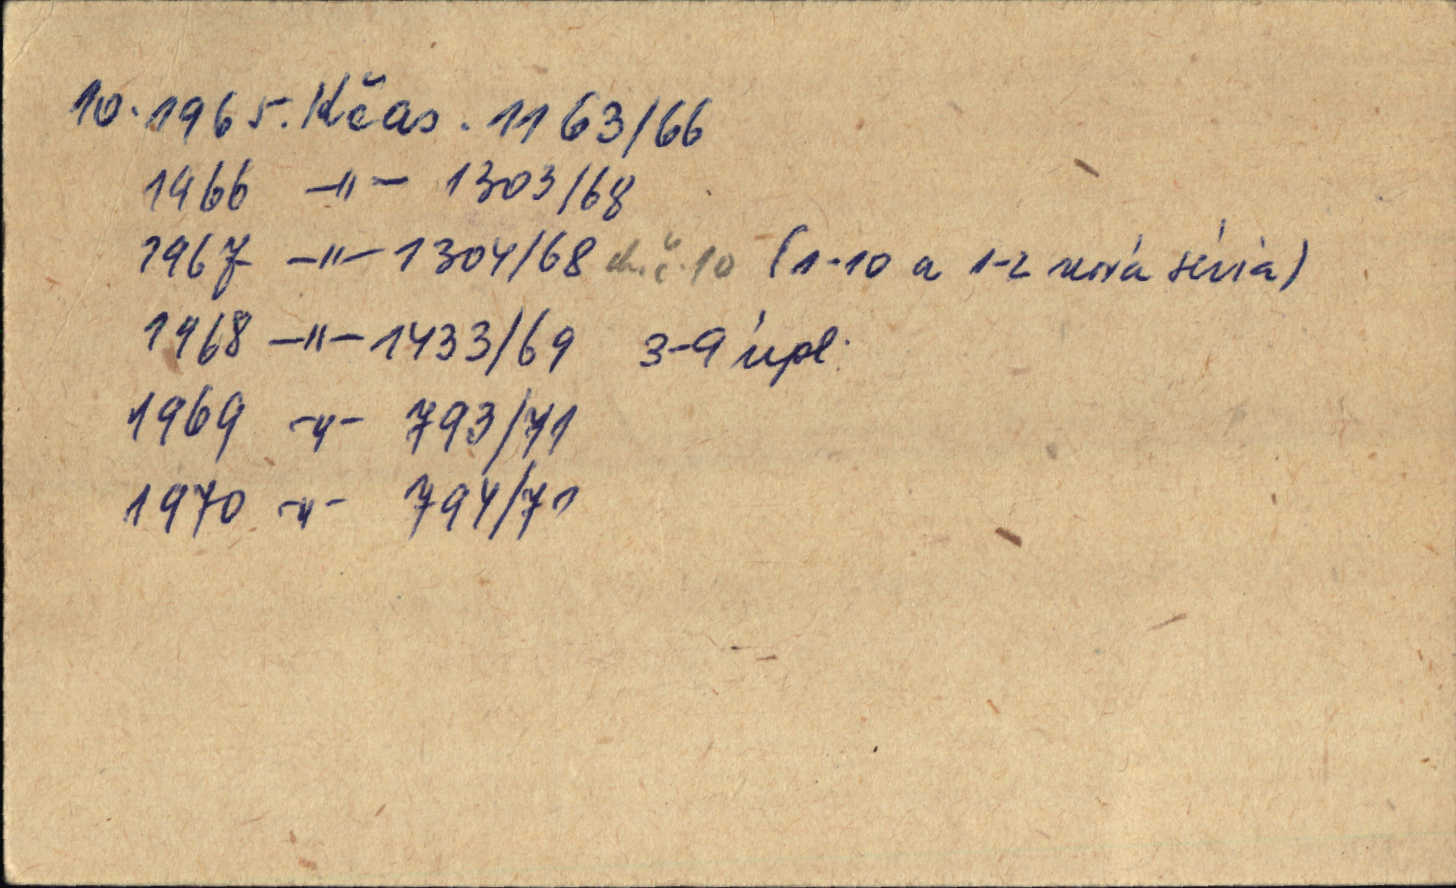 10. 1965. Kčas. 1163/66
1966 -"- 1303/68
1967 -"- 1304/68 ch.č.10 (1-10 a 1-2 nová séria)
1968 -"- 1433/69 3-9 úpl.
1969 -"- 793/71
1970 -"- 794/71